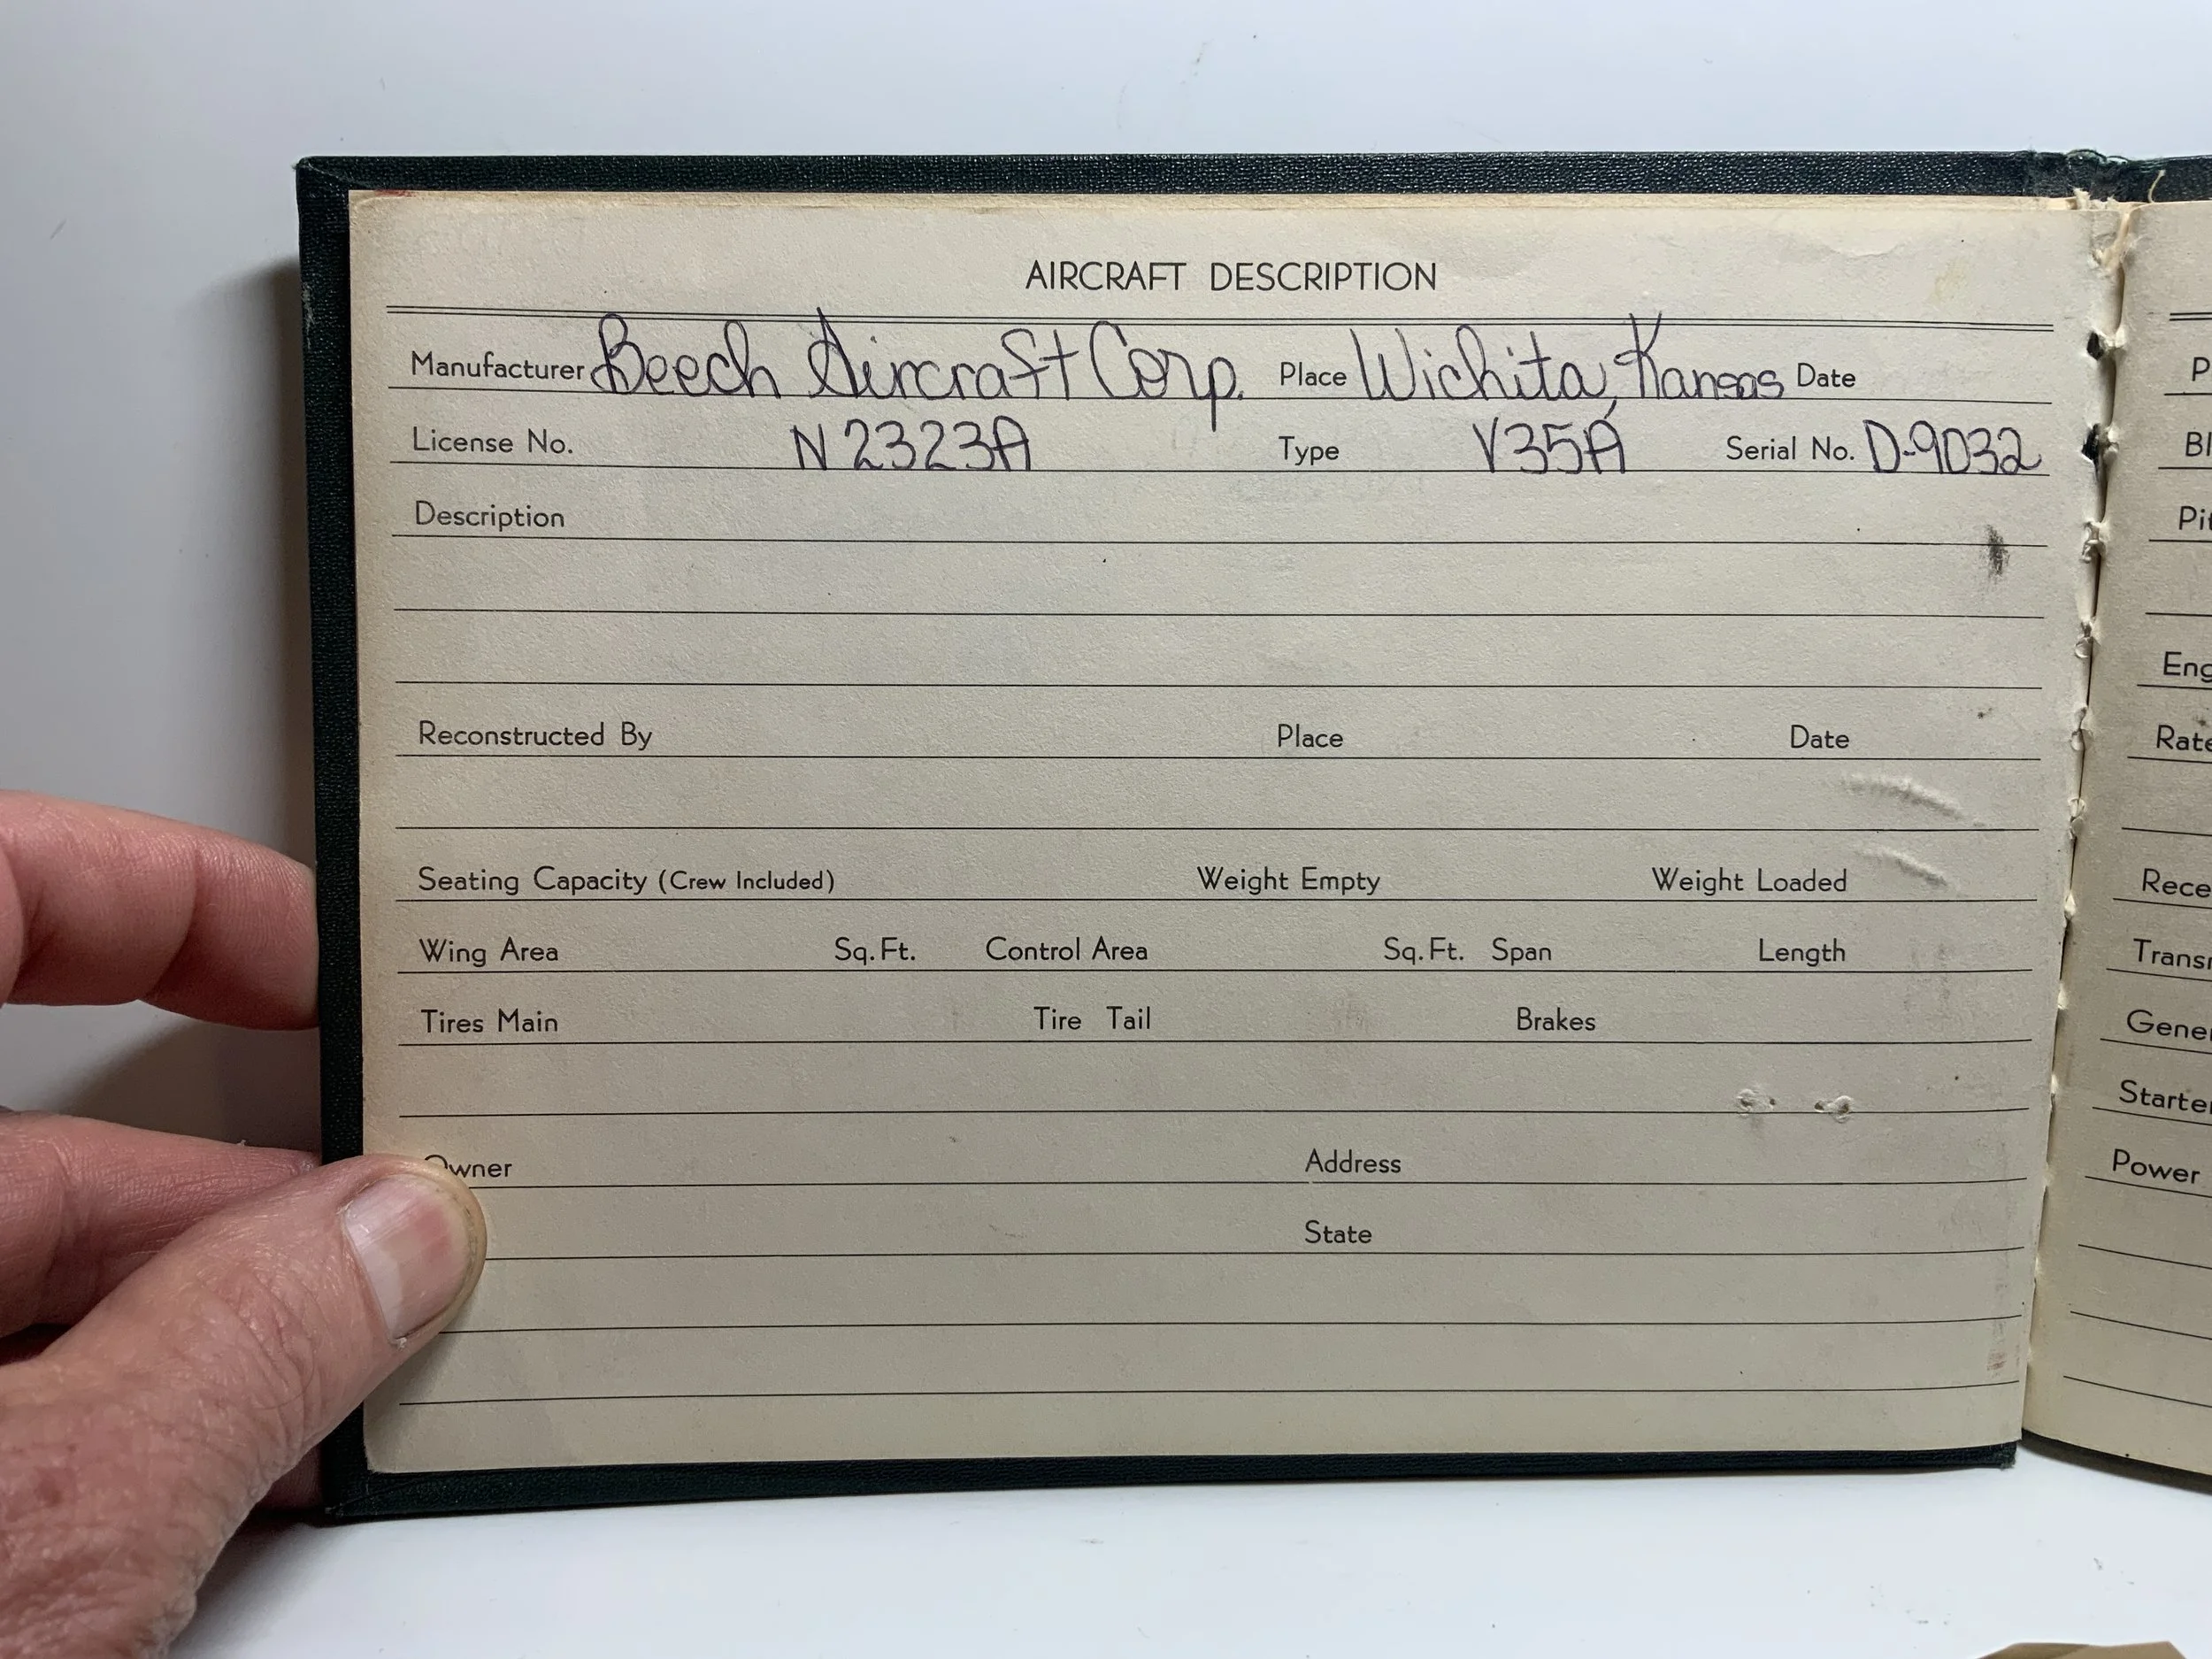 AIRCRAFT DESCRIPTION
Manufacturer Beech Aircraft Corp. Place Wichita, Kansas Date
License No. N2323A Type V35A Serial No. D-9032
Description
Reconstructed By Place Date
Seating Capacity (Crew Included) Weight Empty Weight Loaded
Wing Area Sq. Ft. Control Area Sq. Ft. Span Length
Tires Main Tire Tail Brakes
Owner Address
State
P
Bl
Pit
Eng
Rate
Rece
Trans
Gene
Starte
Power